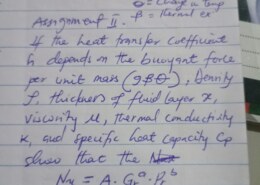 θ = Change in temp
Assignment II. β = thermal ex
If the heat transfer coefficient
h depends on the buoyant force
per unit mass (gβθ), Density
ρ, thickness of fluid layer x,
viscosity μ, thermal conductivity
K, and specific heat capacity Cp
show that the
Nu = A. Gr^a. Pr^b